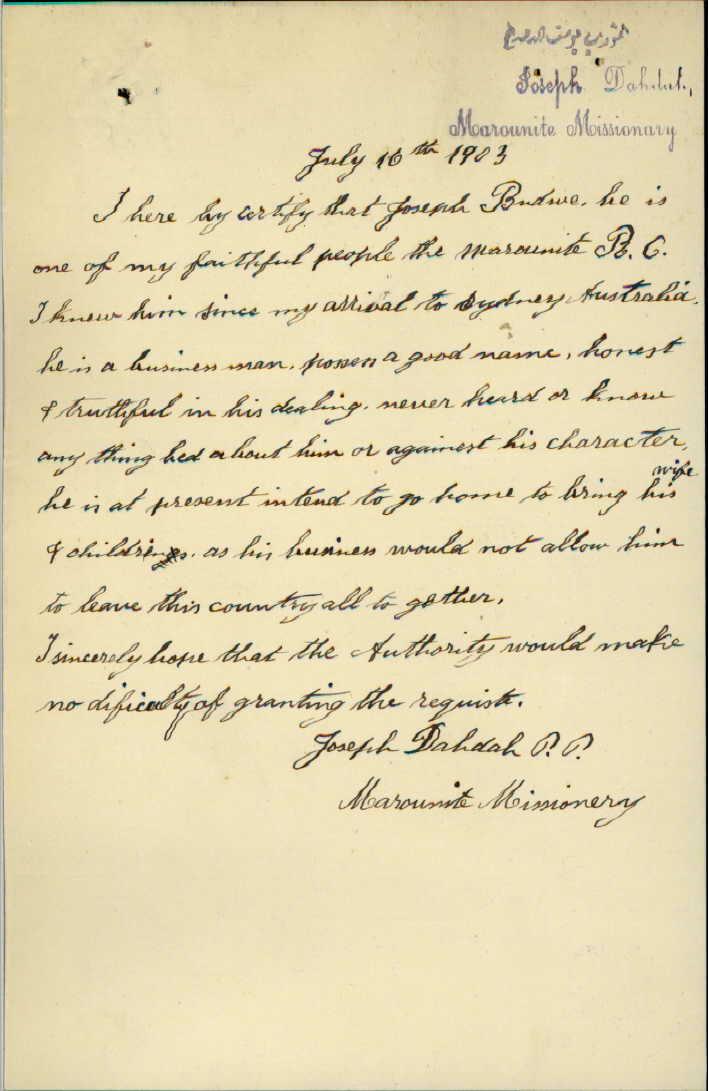 الخوري يوسف الدحداح
Joseph Dahdah,
Marounite Missionary
July 16th 1903
I here by certify that Joseph Budwe. he is
one of my faithful people the marounite R. C.
I knew him since my arrival to Sydney Australia.
he is a business man. posses a good name, honest
& truthful in his dealing. never heard or know
any thing bed about him or against his character,
he is at present intend to go home to bring his wife
& children. as his business would not allow him
to leave this country all to gether.
I sincerely hope that the Authority would make
no dificulty of granting the requist.
Joseph Dahdah P. P.
Marounite Missionery